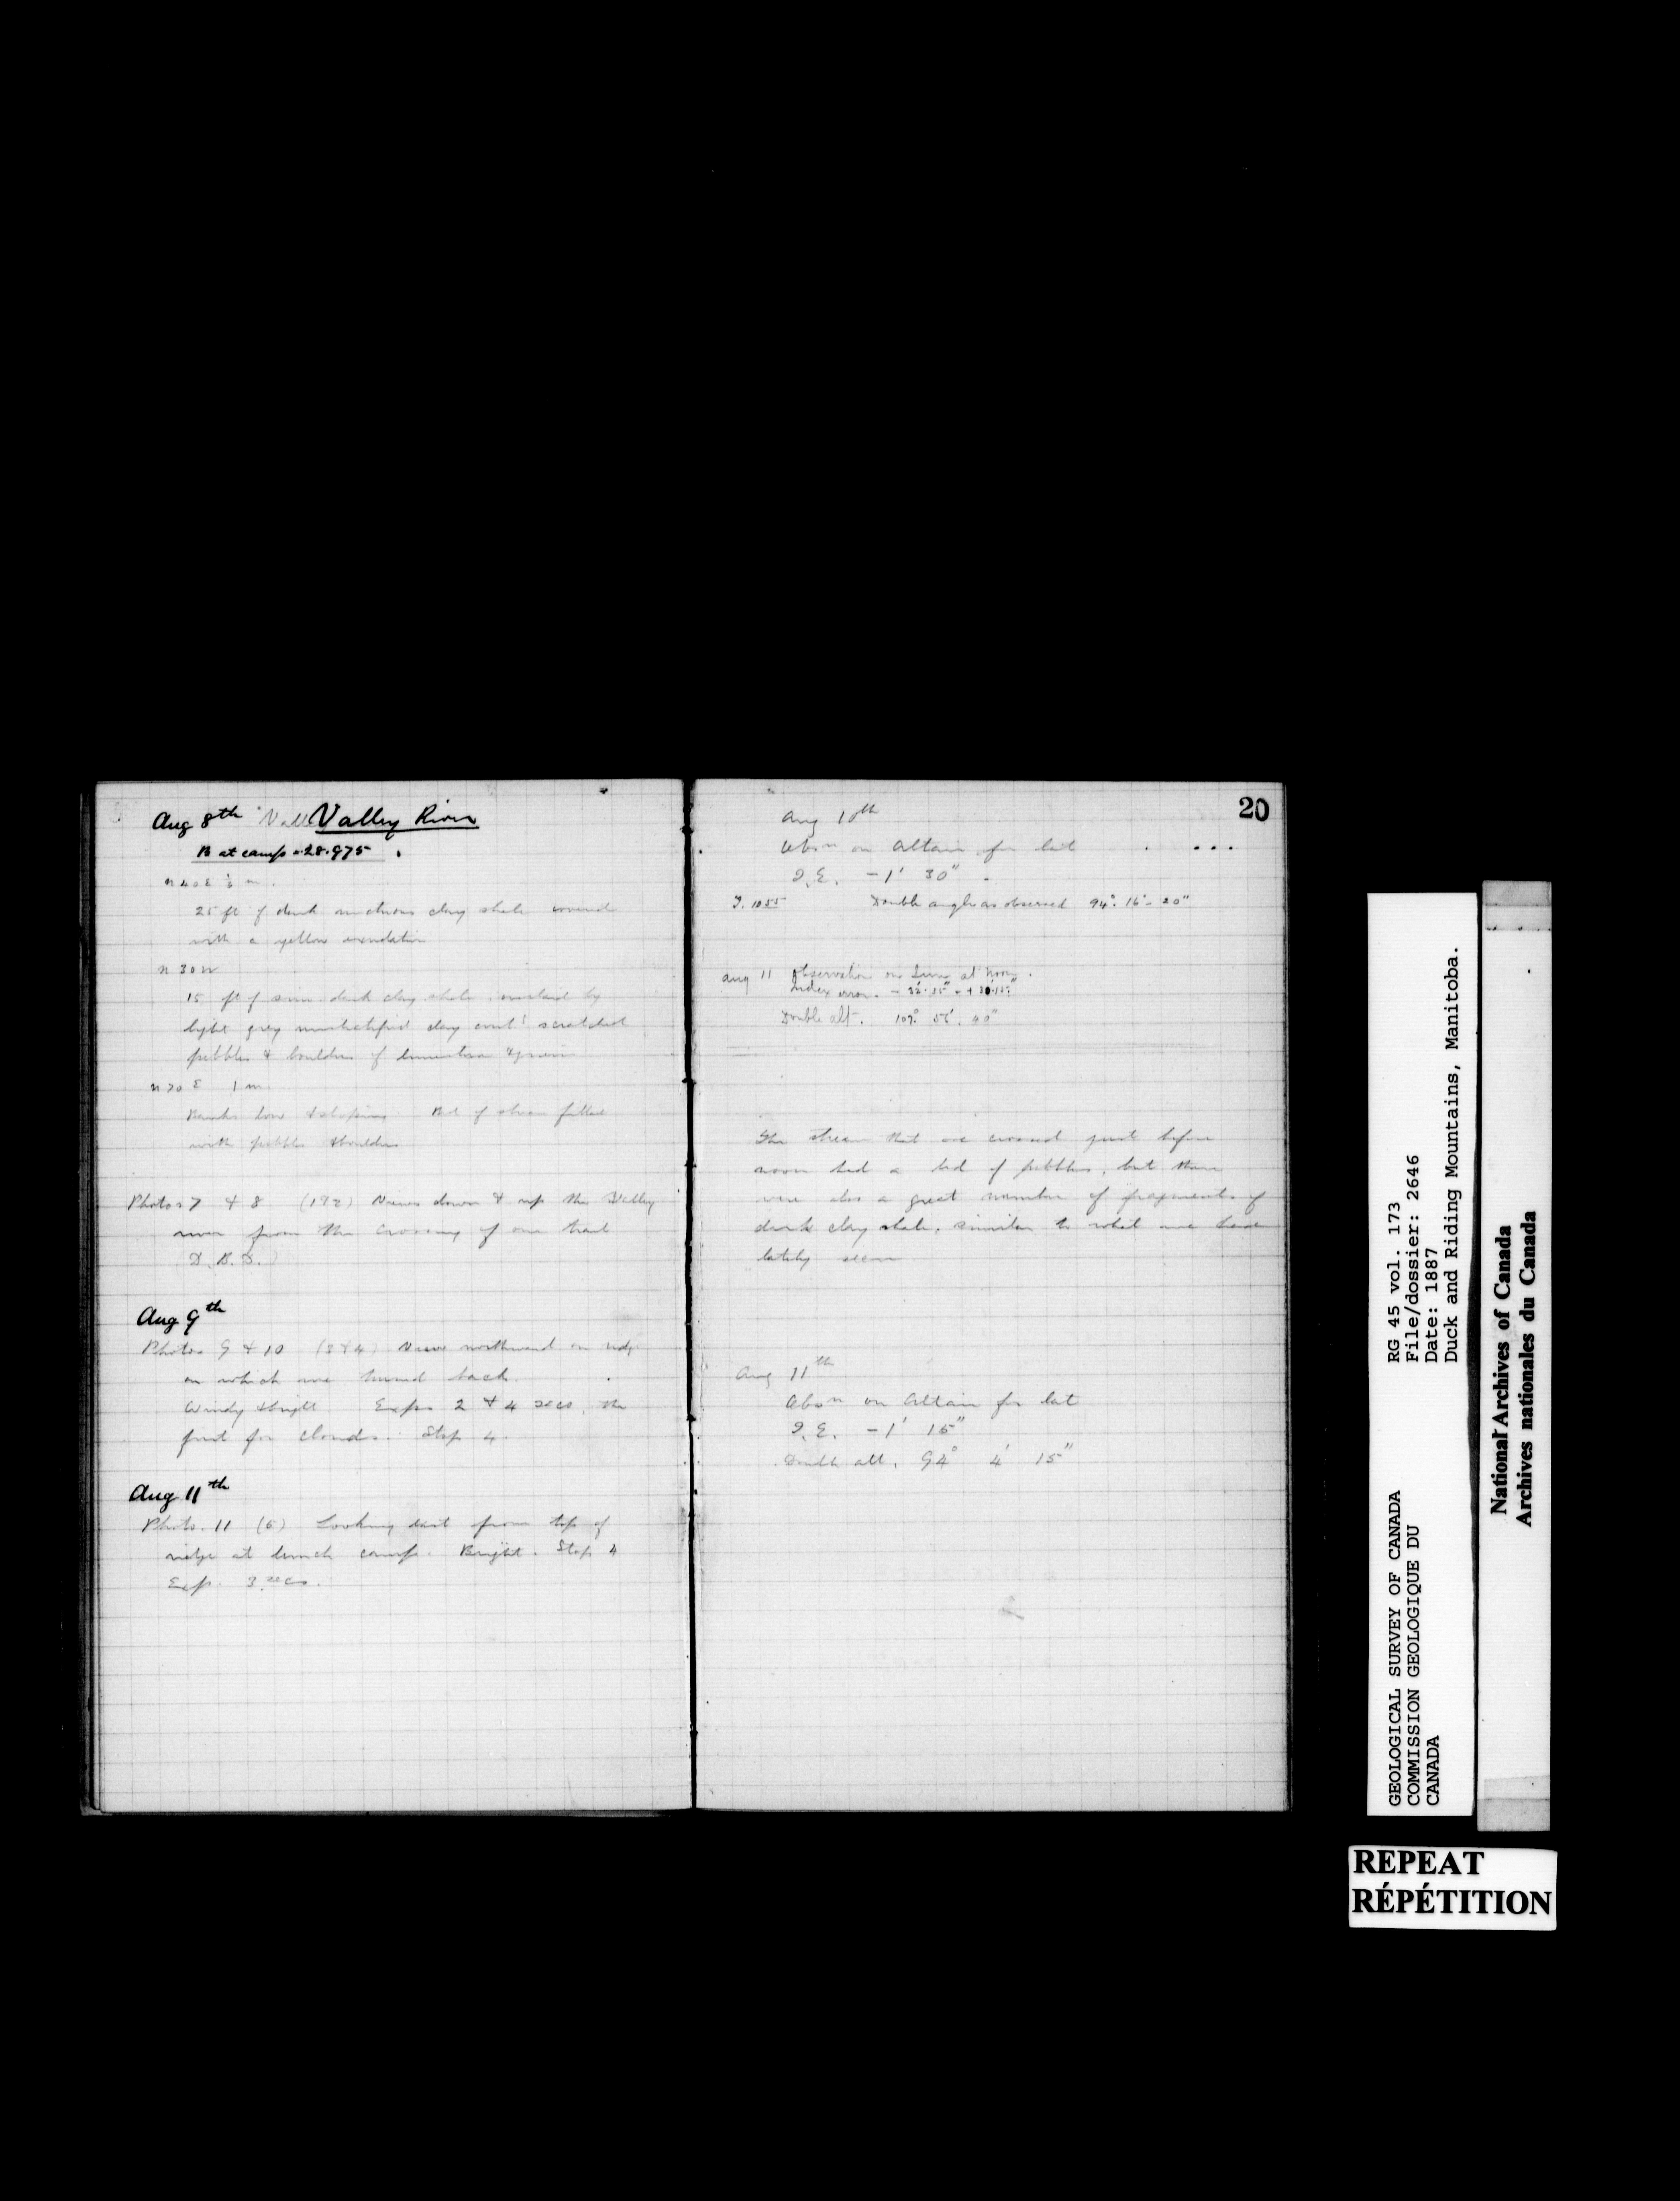 Aug 8th Vall Valley River
B at camp = 28.975
N 40 E ½ m.
25 ft of dark unctuous clay shale covered
with a yellow exudation
N 30 W
15 ft of sim. dark clay shale overlaid by
light grey unstratified clay cont'g scratched
pebbles & boulders of limestone & gneiss
N 20 E 1 m.
Banks low & sloping Bed of stream filled
with pebbles & boulders
Photos 7 & 8 (1 & 2) Views down & up the Valley
river from the crossing of our trail
D.B.D.)
Aug 9th
Photos 9 & 10 (3 & 4) View northward on ridge
on which we turned back.
Windy & bright Exps 2 & 4 secs, the
first for clouds. Stop 4.
Aug 11th
Photo. 11 (5) Looking east from top of
ridge at lunch camp. Bright. Stop 4
Exp. 3 secs.
20
Aug 10th
Obsn on Altair for lat
I.E. -1' 30"
T. 10 55 Double angle as observed 94° 16' 20"
Aug 11 Observation on Sun at noon.
Index error.
Double alt. 109° 56' 40"
The stream that we crossed just before
noon had a bed of pebbles, but there
were also a great number of fragments of
dark clay shale, similar to what we have
lately seen
Aug 11th
Obsn on Altair for lat
I.E. -1' 15"
Double alt. 94° 4' 15"
GEOLOGICAL SURVEY OF CANADA
COMMISSION GEOLOGIQUE DU
CANADA
RG 45 vol. 173
File/dossier: 2646
Date: 1887
Duck and Riding Mountains, Manitoba.
National Archives of Canada
Archives nationales du Canada
REPEAT
RÉPÉTITION